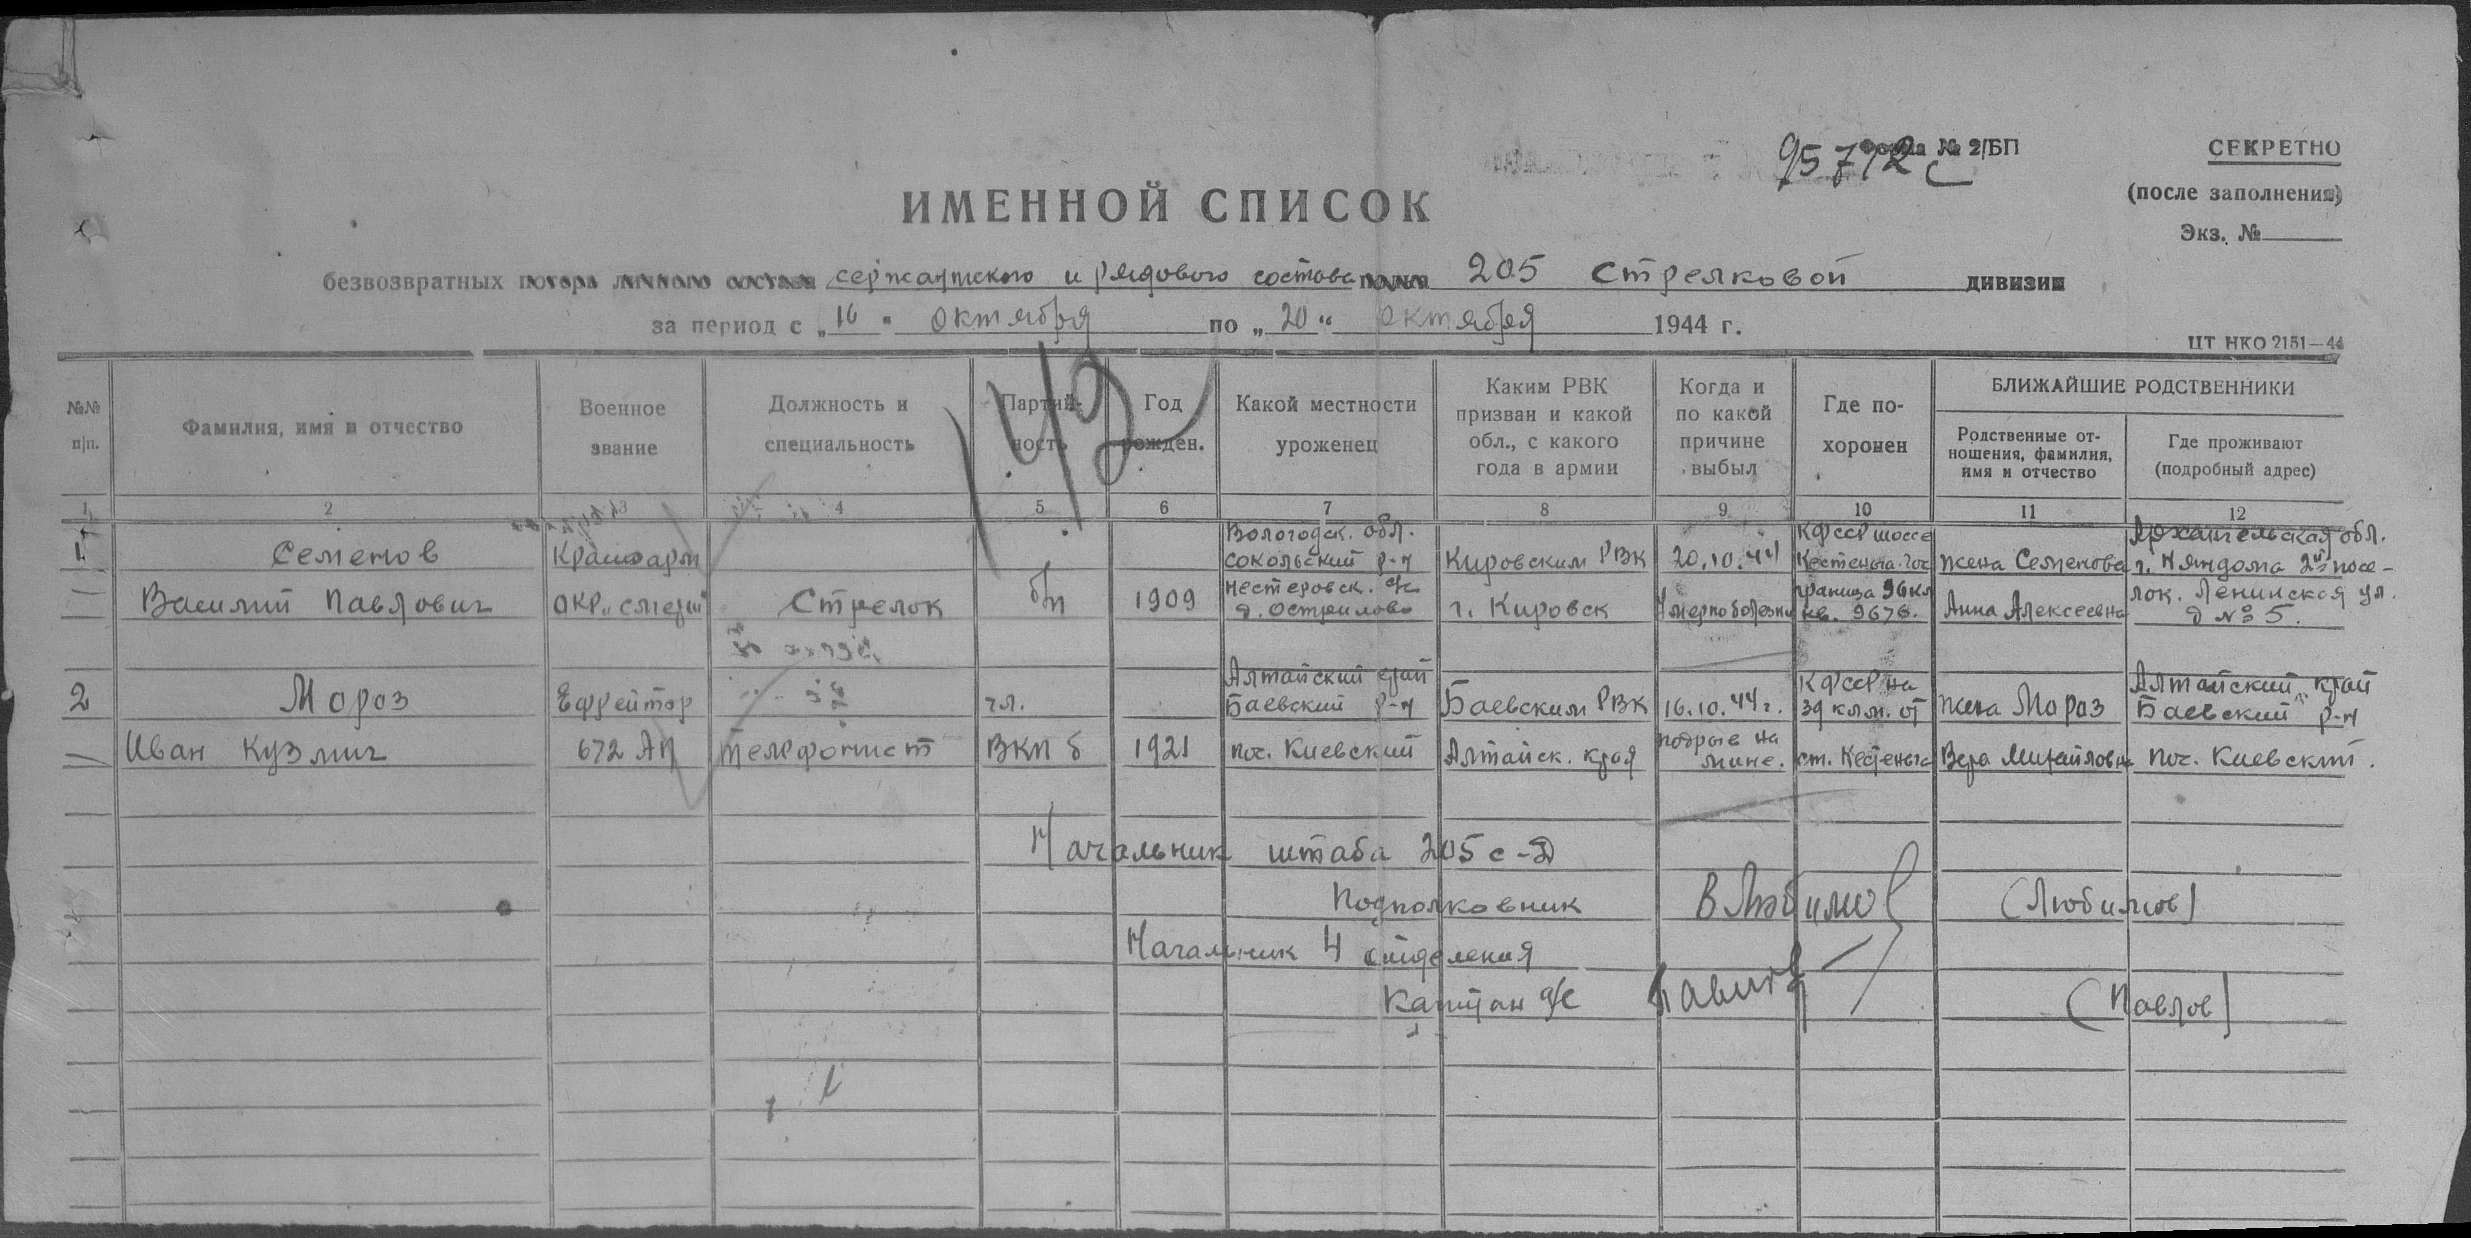 95712с
Форма № 2/БП
СЕКРЕТНО
(после заполнения)
Экз. №
ИМЕННОЙ СПИСОК
безвозвратных потерь личного состава сержантского и рядового состава 205 Стрелковой дивизии
за период с „16" октября по „20" октября 1944 г.
ЦТ НКО 2151—44
№№ п/п.
Фамилия, имя и отчество
Военное звание
Должность и специальность
Партийность
Год рожден.
Какой местности уроженец
Каким РВК призван и какой обл., с какого года в армии
Когда и по какой причине выбыл
Где похоронен
БЛИЖАЙШИЕ РОДСТВЕННИКИ
Родственные отношения, фамилия, имя и отчество
Где проживают (подробный адрес)
1 2 3 4 5 6 7 8 9 10 11 12
1.
Семенов
Василий Павлович
Красноарм
ОКР „смерш"
Стрелок
б/п
1909
Вологодск. обл.
Сокольский р-н
Нестеровск. с/с
д. Острилово
Кировским РВК
г. Кировск
20.10.44
Умер по болезни
КФССР шоссе
Кестеньга-гос
граница 96 кл
кв. 9676.
жена Семенова
Анна Алексеевна
Архангельская обл.
г. Няндома 2й посе-
лок. Ленинская ул.
д № 5.
2
Мороз
Иван Кузмич
Ефрейтор
672 АП
телефонист
чл.
ВКП б
1921
Алтайский край
Баевский р-н
пос. Киевский
Баевским РВК
Алтайск. края
16.10.44 г.
подрыв на
мине.
КФССР на
39 клм. от
ст. Кестеньга
жена Мороз
Вера Михайловна
Алтайский край
Баевский р-н
пос. Киевский.
Начальник штаба 205 с-д
Подполковник ВЛюбимов (Любимов)
Начальник 4 отделения
Капитан а/с Павлов (Павлов)